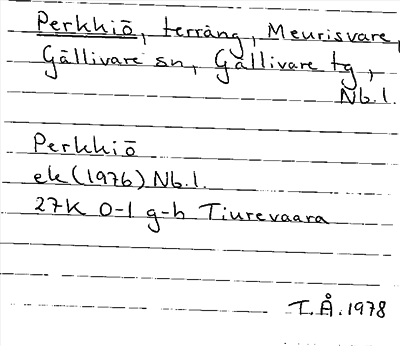 Perkkiö, terräng, Meurisvare,
Gällivare sn, Gällivare tg,
Nb.l.
Perkkiö
ek (1976) Nb.l.
27K 0-1 g-h Tiurevaara
T.Å. 1978